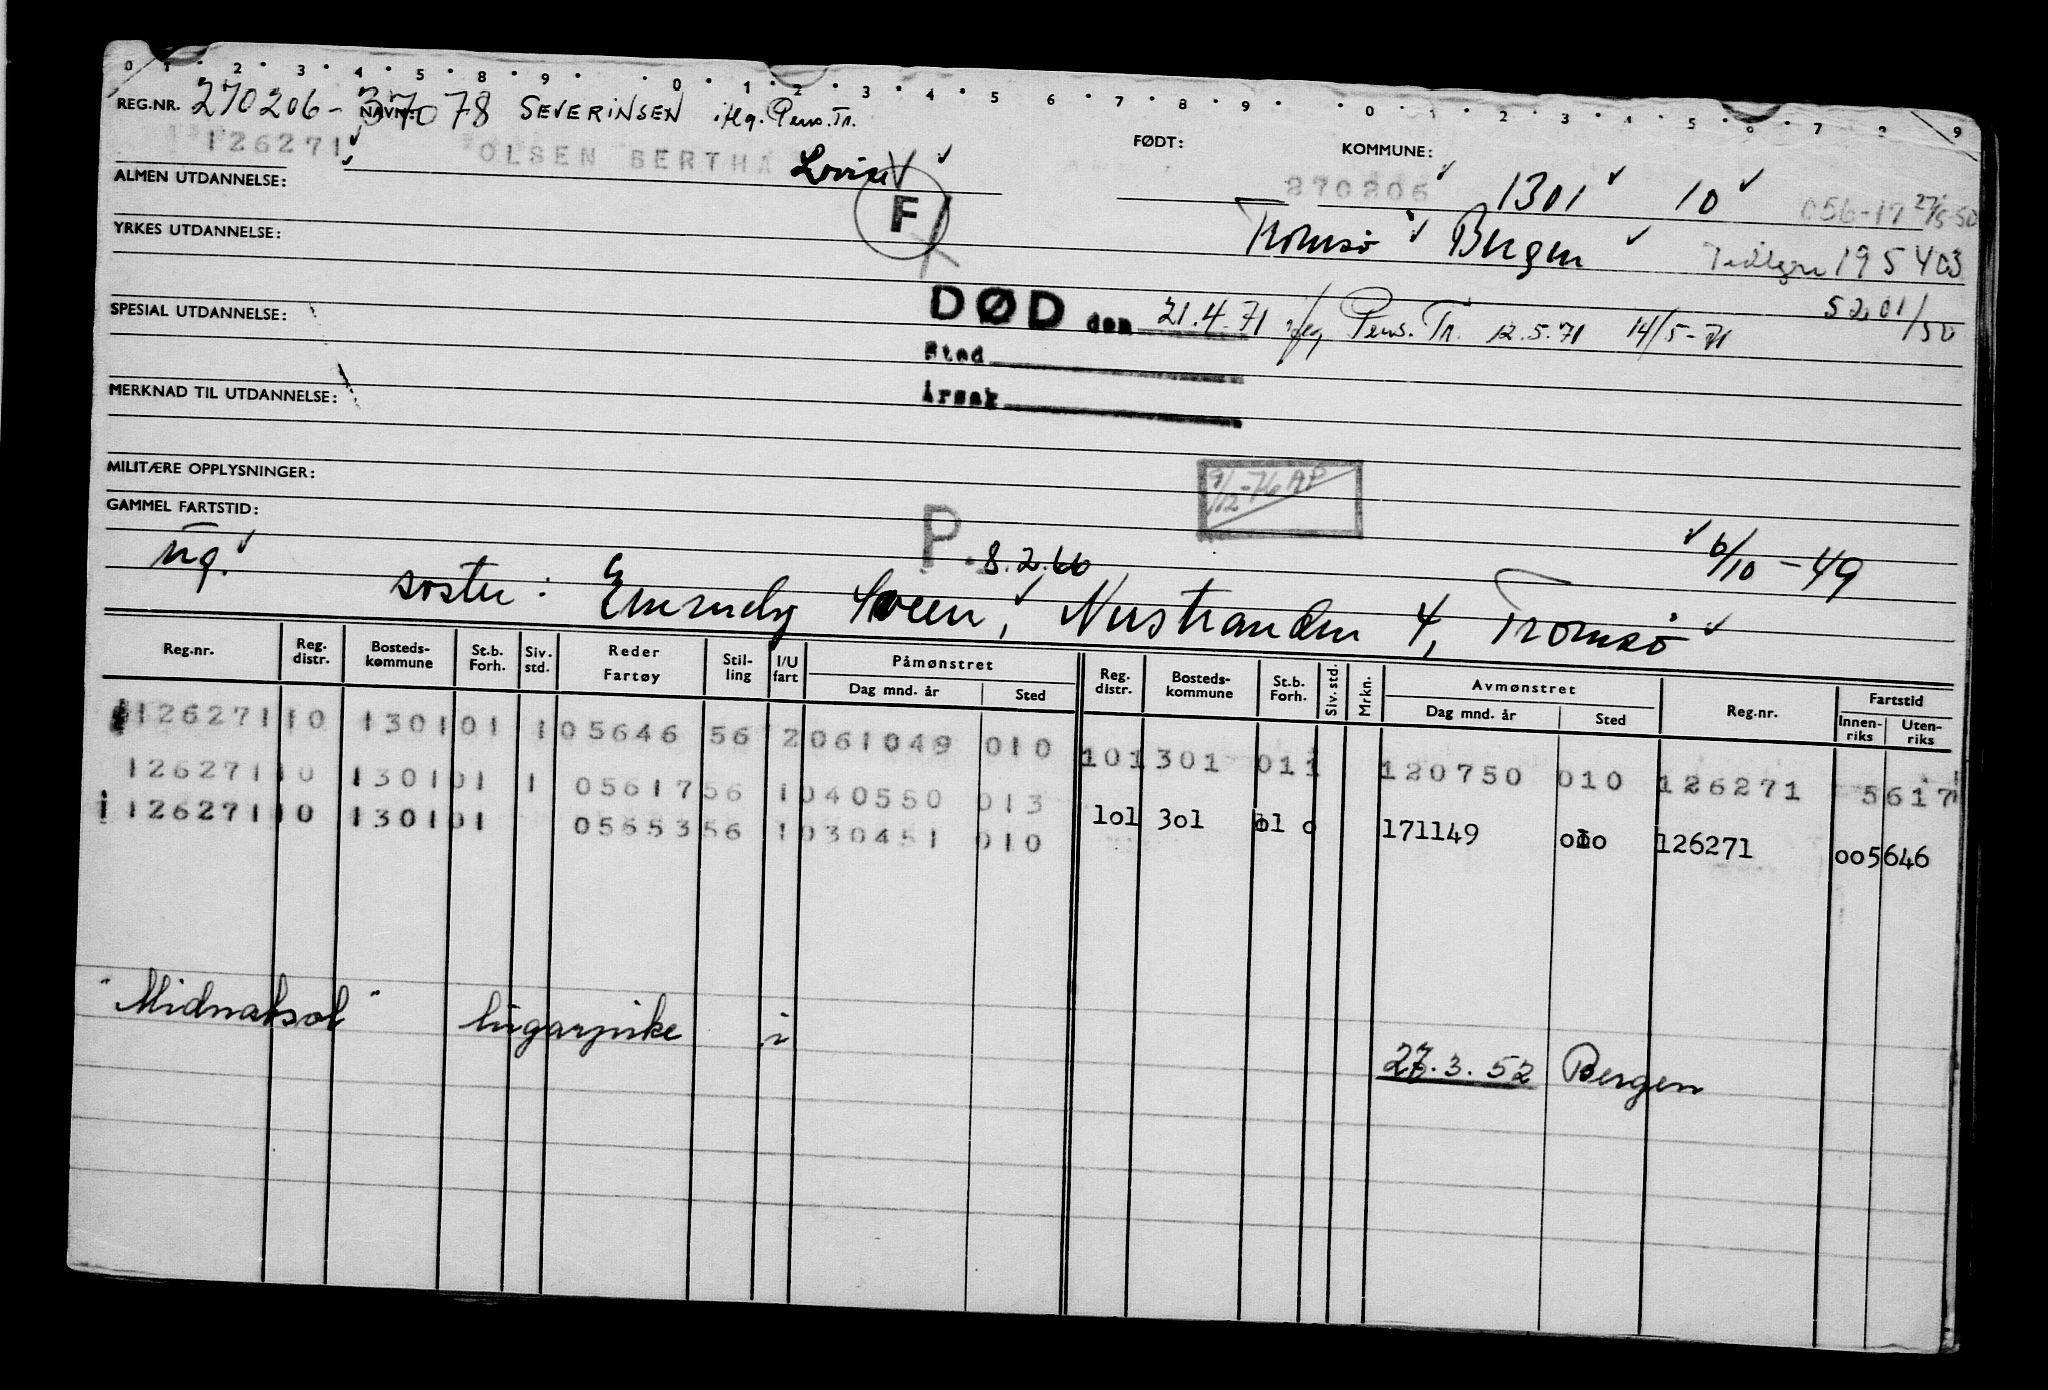 0 1 2 3 4 5 8 9 0 1 2 3 4 5 6 7 8 9 0 1 2 3 4 5 6 7 8 9
REG.NR. 270206-37078 NAVN: SEVERINSEN iflg. Pens. Tr.
126271 OLSEN BERTHA Lovise FØDT: 270206 KOMMUNE: 1301 10 056-17 27/5-50
ALMEN UTDANNELSE: F
Tromsø Bergen 195403
YRKES UTDANNELSE:
5201/50
SPESIAL UTDANNELSE: DØD den 21.4.71 iflg Pens. Tr. 12.5.71 14/5-71
Sted
MERKNAD TIL UTDANNELSE: Årsak
MILITÆRE OPPLYSNINGER: 9/12-76 AP
GAMMEL FARTSTID: P. 8.2.66
ug. 6/10-49
søster: Sveen, Tromsø
Reg.nr. Reg. distr. Bosteds-kommune St.b. Forh. Siv. std. Reder Fartøy Stil-ling I/U fart Påmønstret Dag mnd. år Sted Reg. distr. Bosteds-kommune St.b. Forh. Siv. std. Mrkn. Avmønstret Dag mnd. år Sted Reg.nr. Fartstid Innen-riks Uten-riks
126271 10 1301 01 1 05646 56 2 061049 010 10 1301 011 120750 010 126271 5617
126271 10 1301 01 1 05617 56 1 040550 013 lol 3ol ol o 171149 olo 126271 oo5646
126271 10 1301 01 05653 56 1 030451 010
"Midnatsol" lugarpike i 27.3.52 Bergen